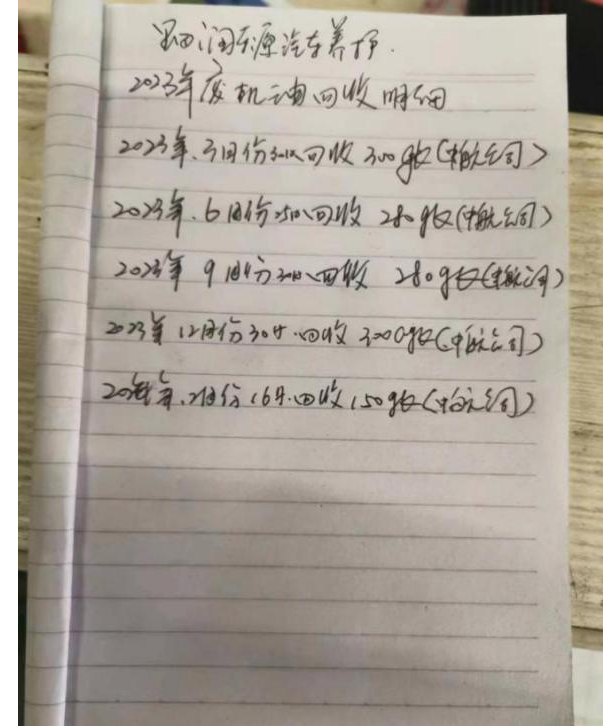 润东源汽车养护.
2023年废机油回收明细
2023年.3月份30日回收 300公斤(中航公司)
2023年.6月份25日回收 280公斤(中航公司)
2023年 9月份30日回收 280公斤(中航公司)
2023年 12月份30日.回收 300公斤(中航公司)
2024年.2月份16日.回收150公斤(中航公司)